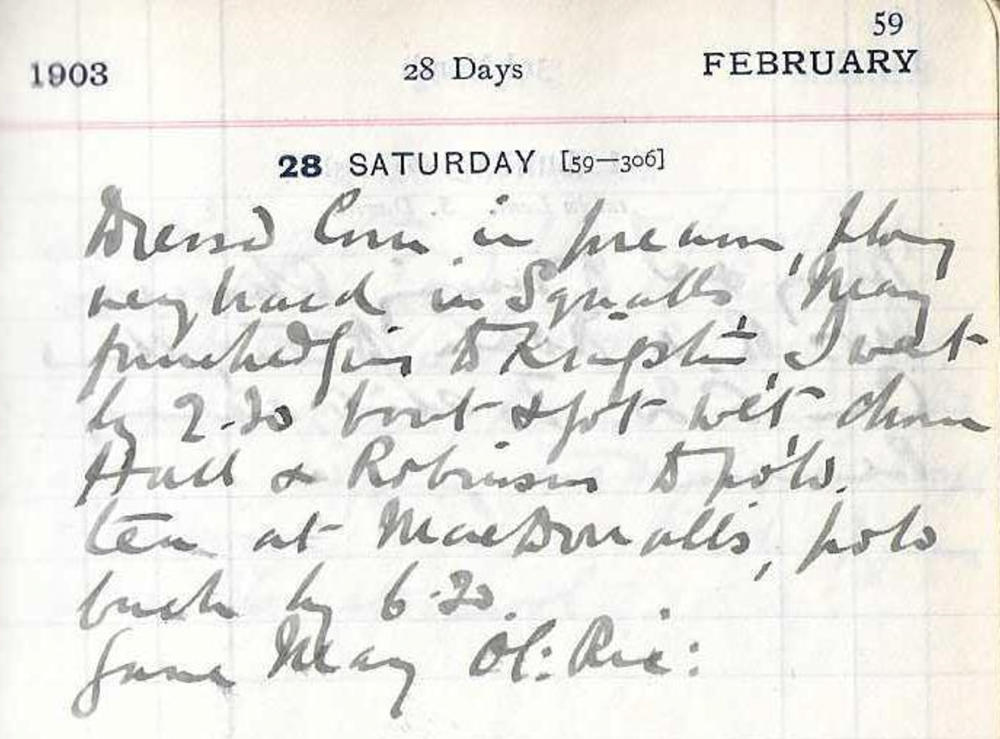 59
1903 28 Days FEBRUARY
28 SATURDAY [59—306]
Dress'd Corn in forenoon, blowing
very hard in Squalls, May
punched to Kingston, I went
by 2-20 boat & got wet, drove
Hall & Robinson to polo.
tea at MacDonalls, polo
back by 6-20.
Gave May Ol: Ric: